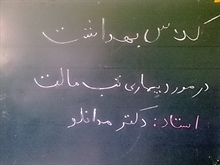 کلاس بهداشت
در مورد بیماری تب مالت
استاد: دکتر مدانلو